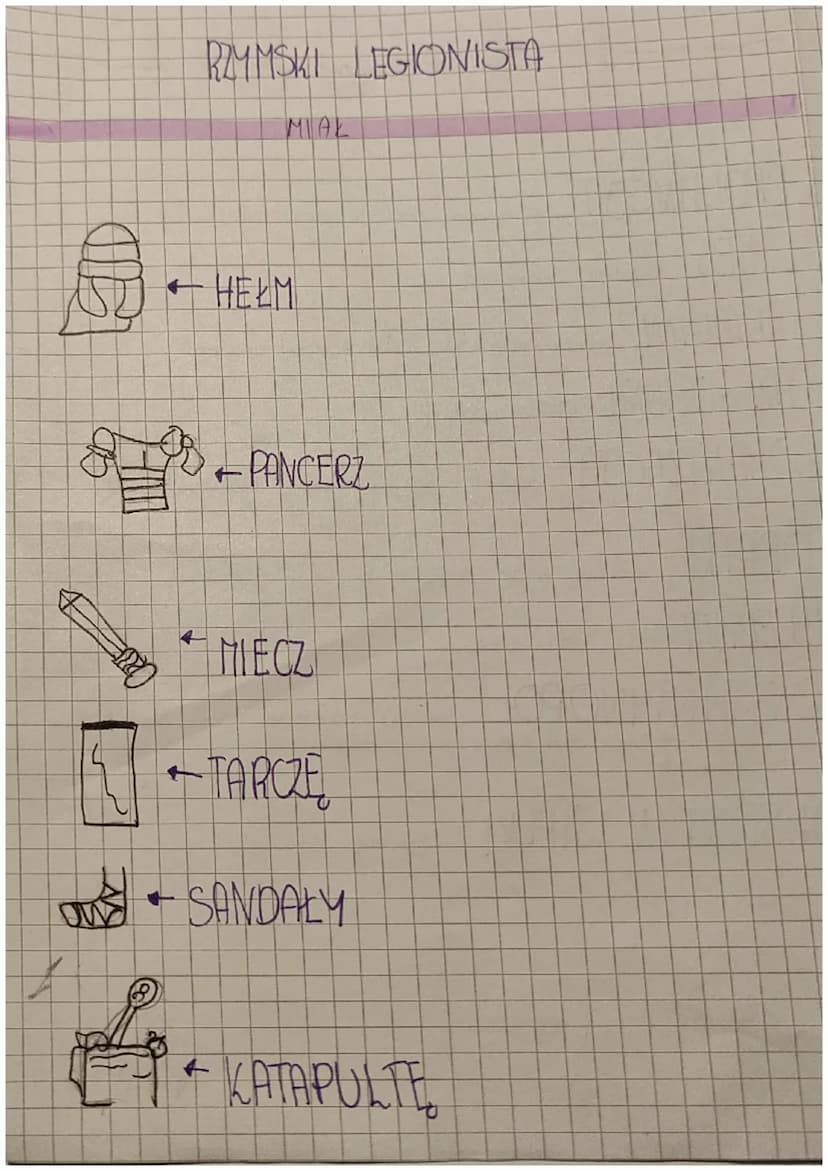 RZYMSKI LEGIONISTA
MIAŁ
HEŁM
PANCERZ
MIECZ
TARCZĘ
SANDAŁY
KATAPULTĘ